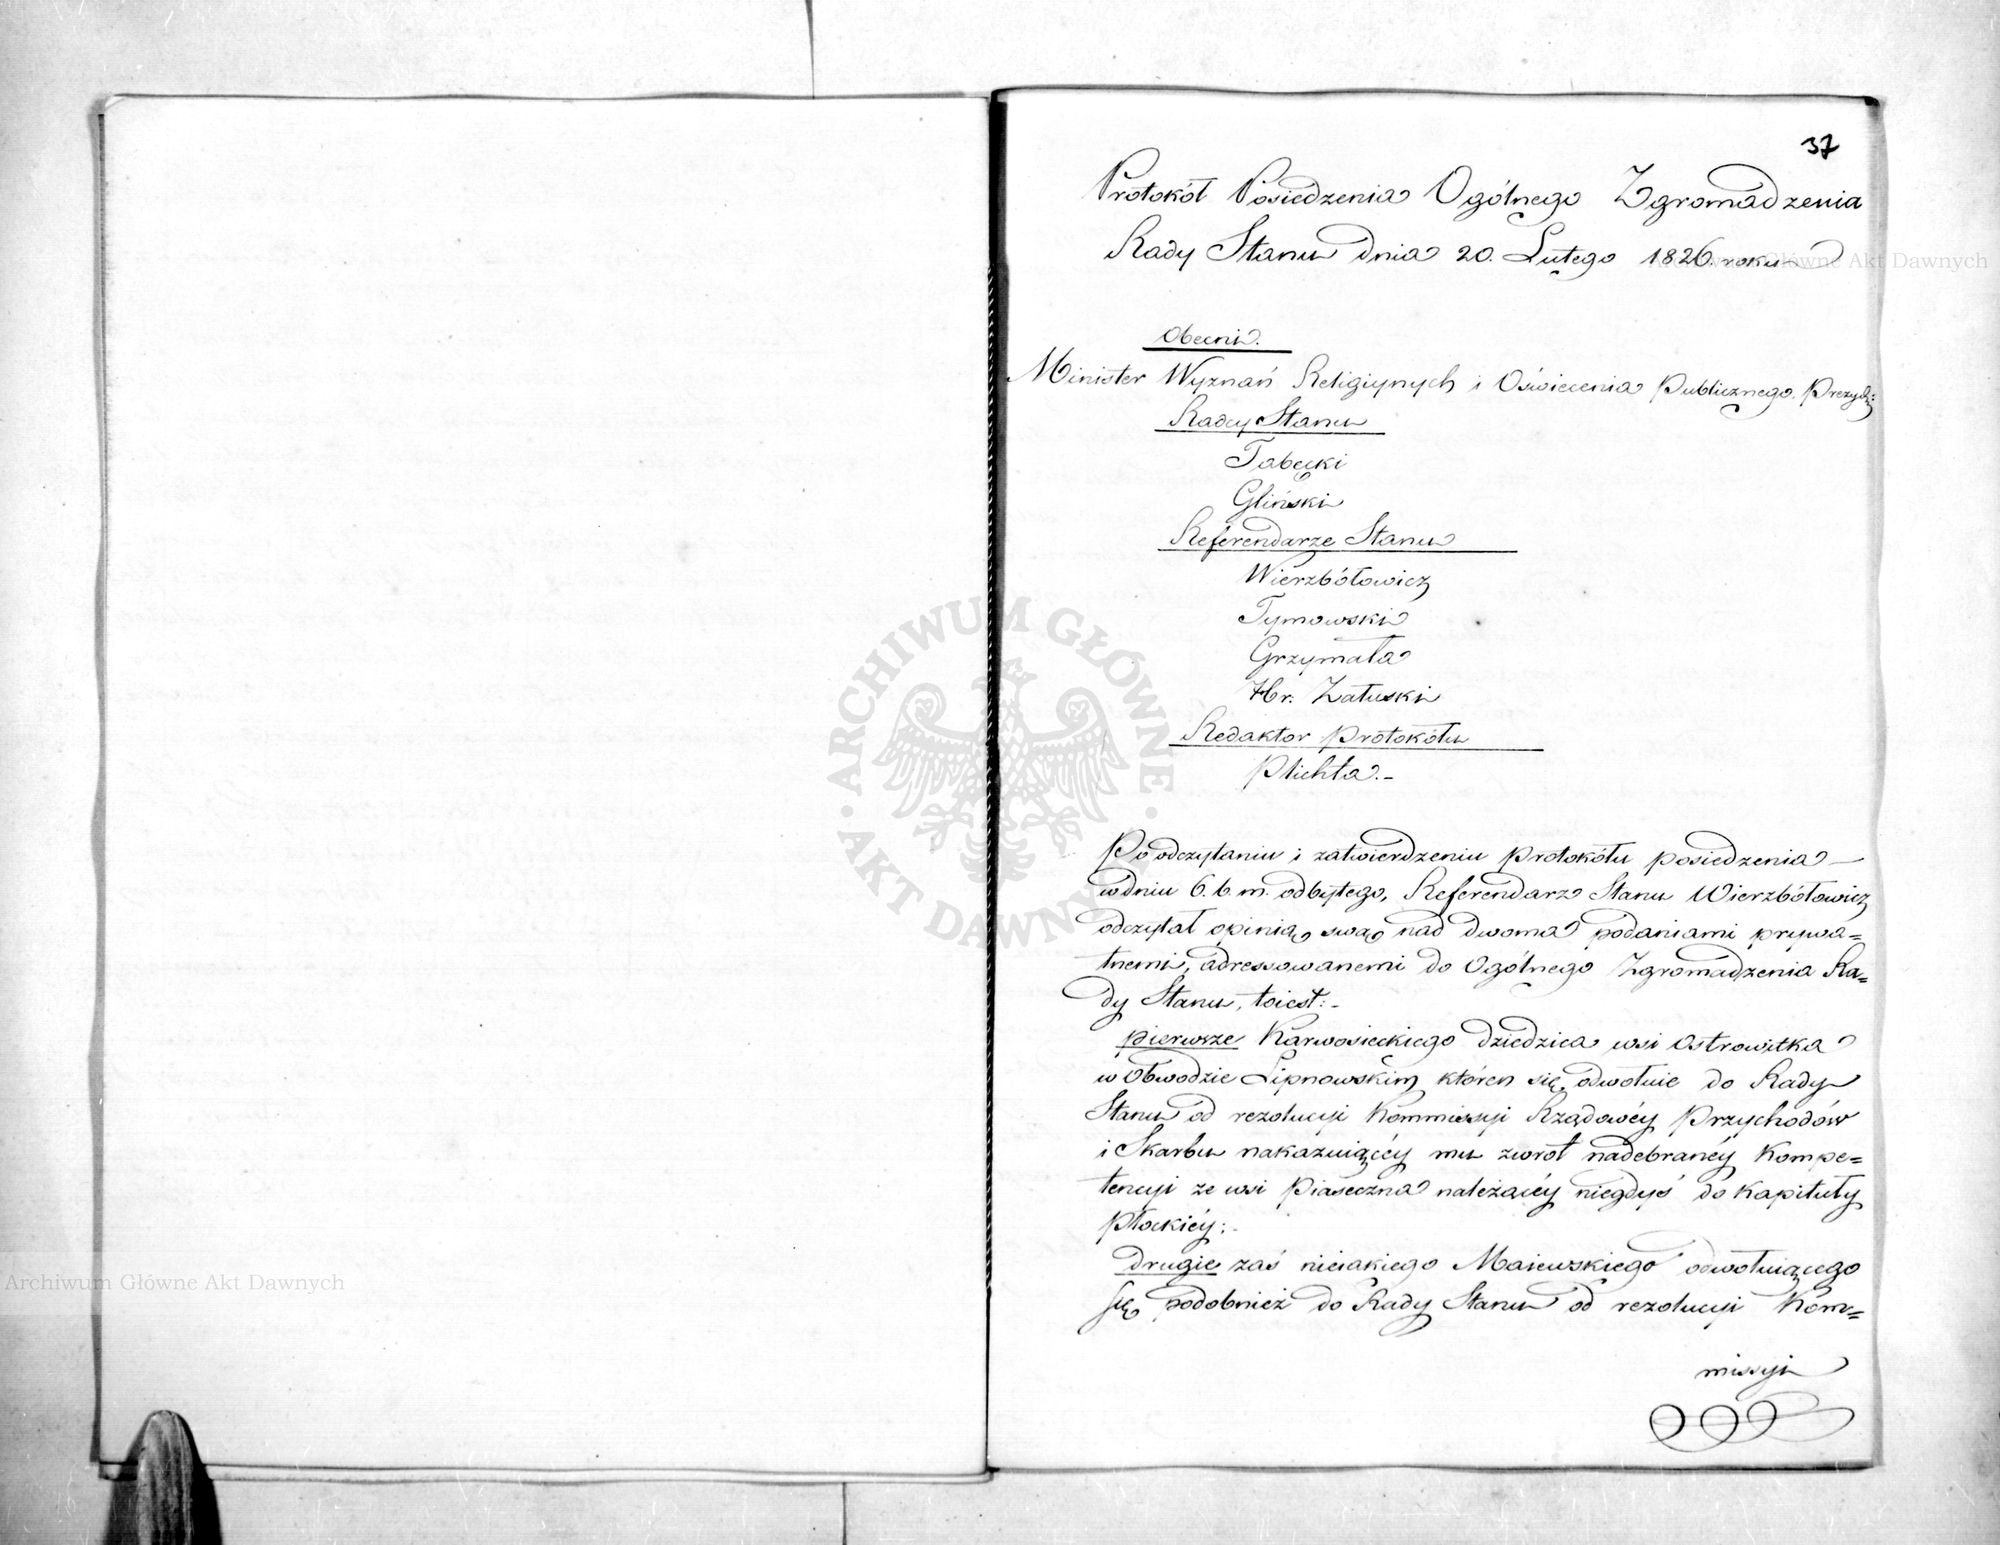 37
Protokół Posiedzenia Ogólnego Zgromadzenia
Rady Stanu dnia 20. Lutego 1826. roku
Obecni.
Minister Wyznań Religiynych i Oświecenia Publicznego. Prezyd:
Radcy Stanu
Tabęcki
Gliński
Referendarze Stanu
Wierzbółowicz
Tymowski
Grzymała
Hr. Załuski
Redaktor Protokółu
Plichta.-
Po odczytaniu i zatwierdzeniu Protokółu posiedzenia —
w dniu 6. b. m. odbytego, Referendarz Stanu Wierzbółowicz
odczytał opinią swą nad dwoma podaniami prywa=
tnemi, adressowanemi do Ogólnego Zgromadzenia Ra=
dy Stanu, toiest:-
pierwsze Karwosieckiego dziedzica wsi Ostrowitka
w Obwodzie Lipnowskim, któren się odwołuie do Rady
Stanu od rezolucyi Kommissyi Rządowéy Przychodów
i Skarbu nakazuiącéy mu zwrot nadebranéy Kompe=
tencyi ze wsi Piaseczna należącéy niegdyś do Kapituły
Płockiéy;-
drugie zaś nieiakiego Maiewskiego odwołuiącego
się podobnież do Rady Stanu od rezolucyi Kom=
missyi
ARCHIWUM GŁÓWNE
AKT DAWNYCH
Archiwum Główne Akt Dawnych
Archiwum Główne Akt Dawnych